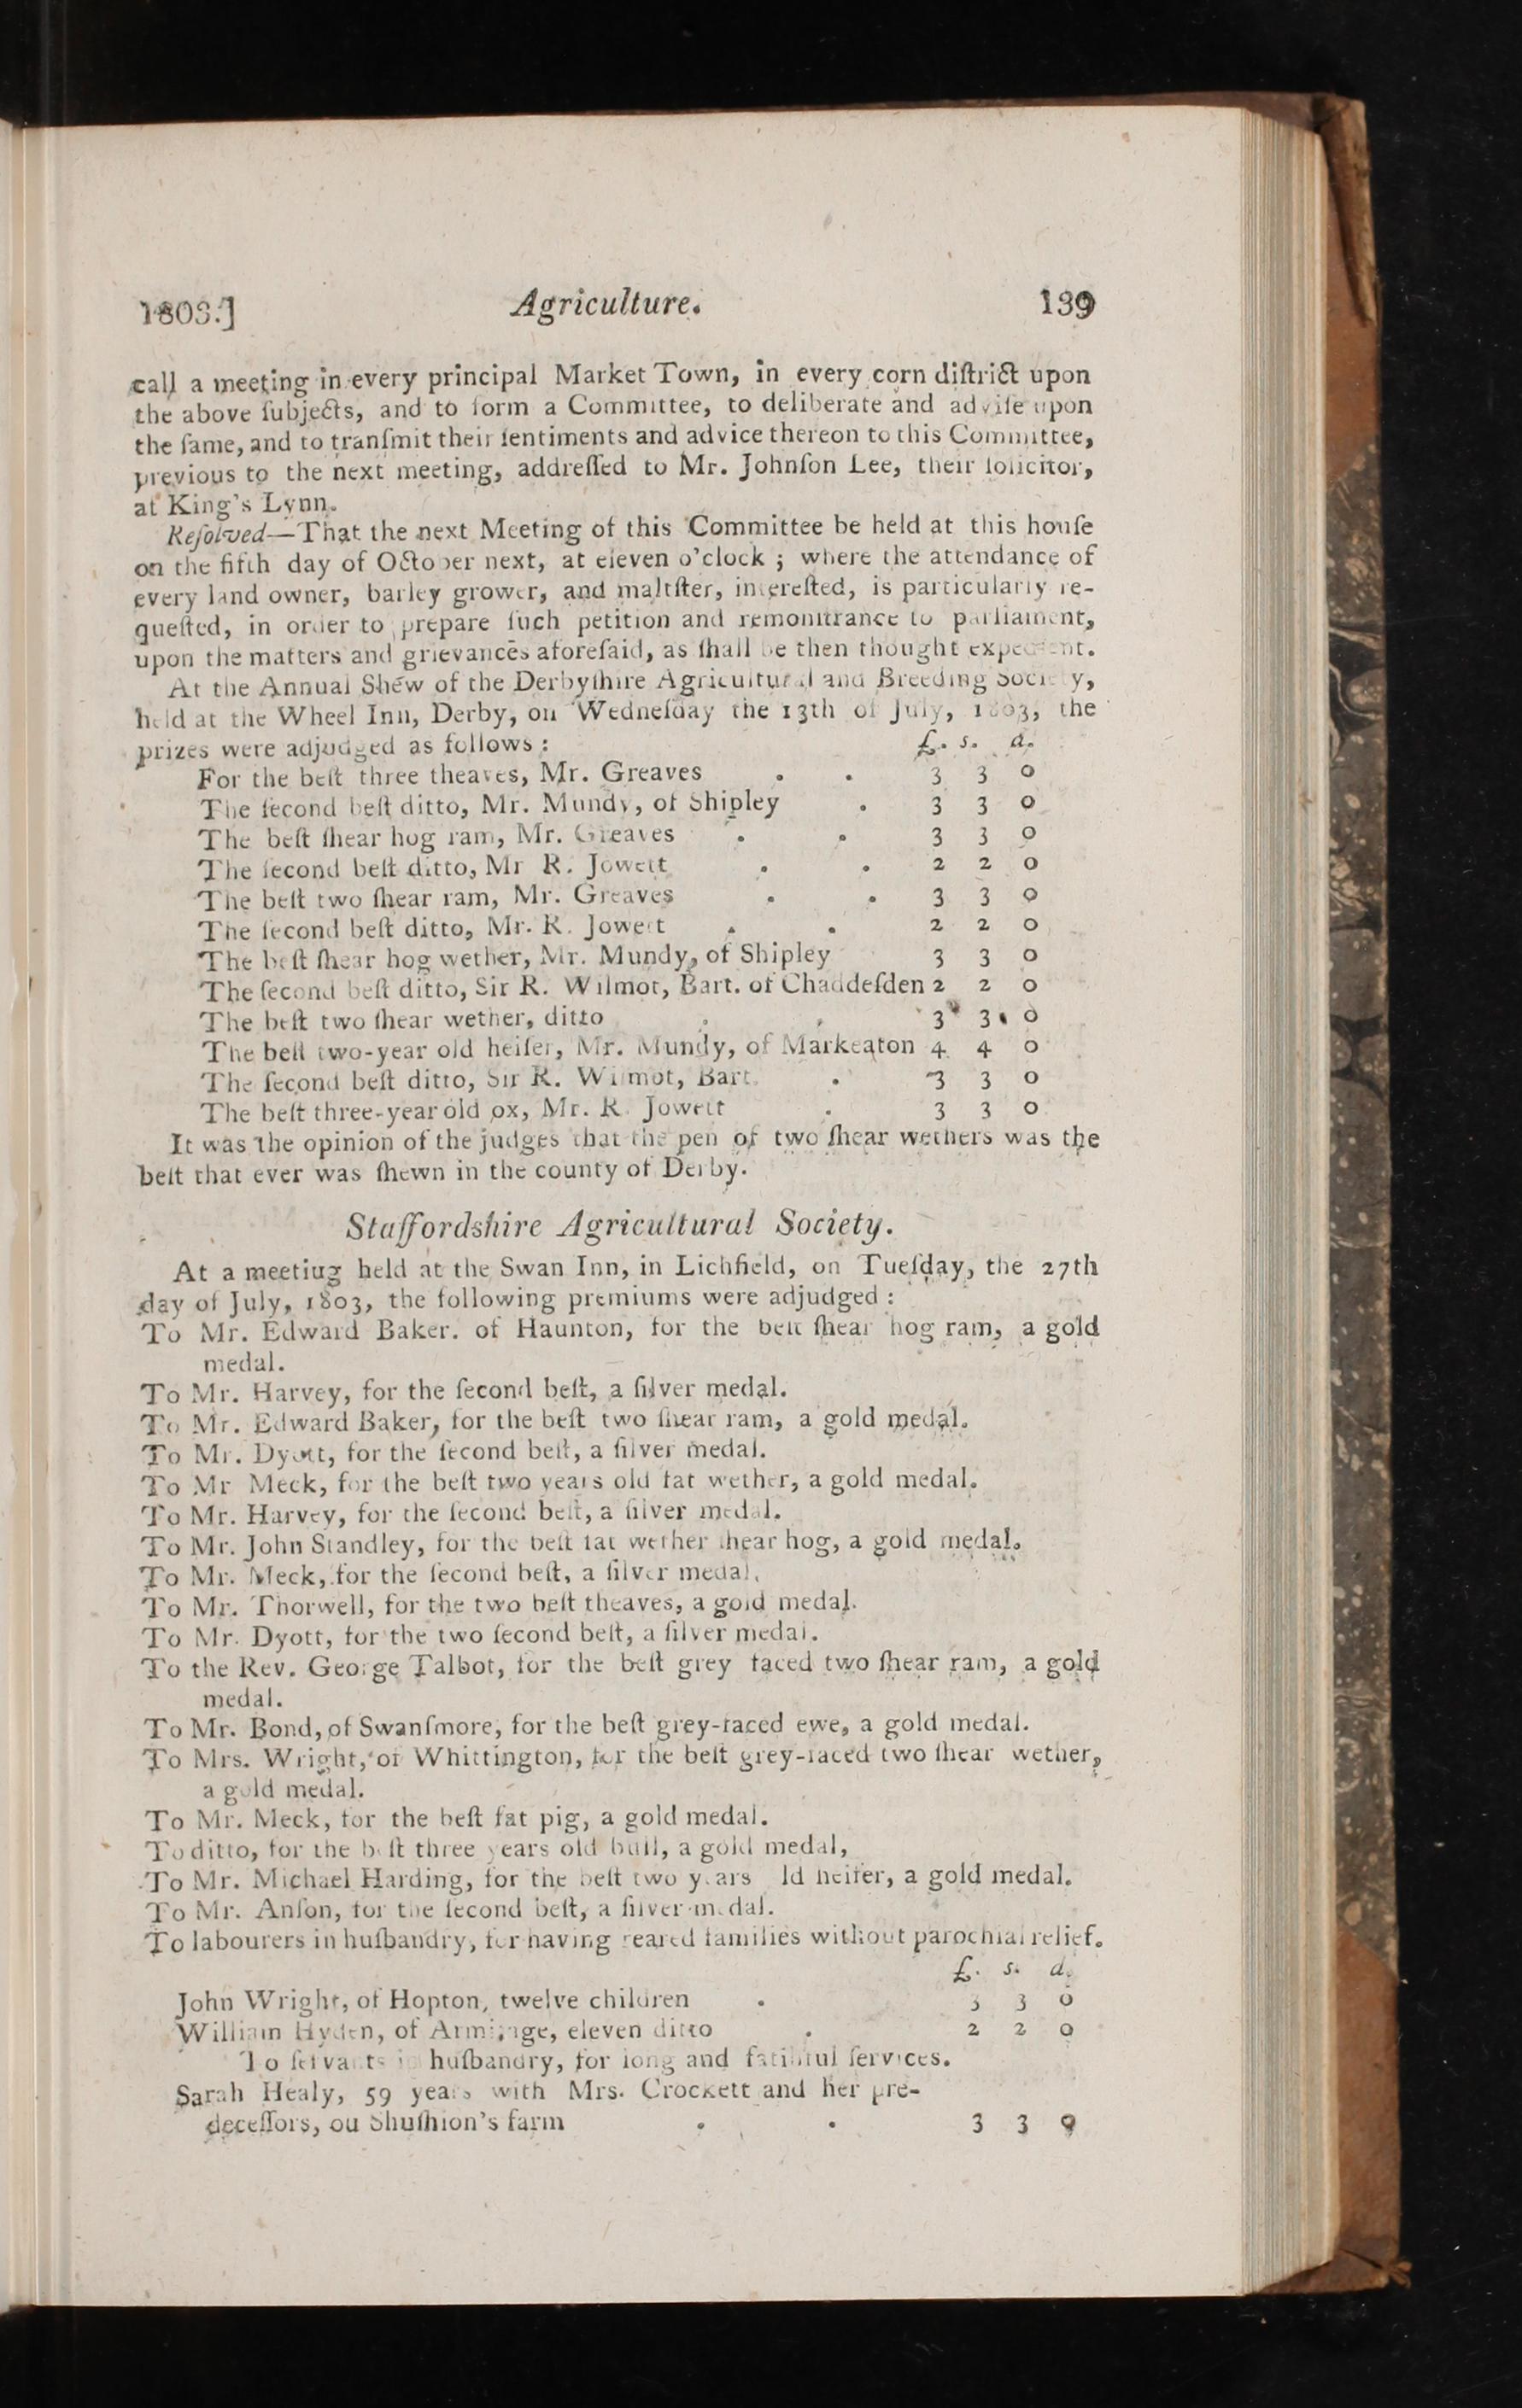 1803.] Agriculture. 139
call a meeting in every principal Market Town, in every corn diſtrict upon
the above ſubjects, and to form a Committee, to deliberate and adviſe upon
the ſame, and to tranſmit their ſentiments and advice thereon to this Committee,
previous to the next meeting, addreſſed to Mr. Johnſon Lee, their ſolicitor,
at King's Lynn.
Reſolved—That the next Meeting of this Committee be held at this houſe
on the fifth day of October next, at eleven o'clock ; where the attendance of
every land owner, barley grower, and maltſter, intereſted, is particularly re-
queſted, in order to prepare ſuch petition and remonſtrance to parliament,
upon the matters and grievances aforeſaid, as ſhall be then thought expedient.
At the Annual Shew of the Derbyſhire Agricultural and Breeding Society,
held at the Wheel Inn, Derby, on Wedneſday the 13th of July, 1803, the
prizes were adjudged as follows : £. s. d.
For the beſt three theaves, Mr. Greaves . . 3 3 0
The ſecond beſt ditto, Mr. Mundy, of Shipley . 3 3 0
The beſt ſhear hog ram, Mr. Greaves . . 3 3 0
The ſecond beſt ditto, Mr R. Jowett . . 2 2 0
The beſt two ſhear ram, Mr. Greaves . . 3 3 0
The ſecond beſt ditto, Mr. R. Jowett . . 2 2 0
The beſt ſhear hog wether, Mr. Mundy, of Shipley 3 3 0
The ſecond beſt ditto, Sir R. Wilmot, Bart. of Chaddeſden 2 2 0
The beſt two ſhear wether, ditto . . 3 3 0
The beſt two-year old heifer, Mr. Mundy, of Markeaton 4 4 0
The ſecond beſt ditto, Sir R. Wilmot, Bart. . 3 3 0
The beſt three-year old ox, Mr. R. Jowett . 3 3 0
It was the opinion of the judges that the pen of two ſhear wethers was the
beſt that ever was ſhewn in the county of Derby.
Staffordshire Agricultural Society.
At a meetiug held at the Swan Inn, in Lichfield, on Tueſday, the 27th
day of July, 1803, the following premiums were adjudged :
To Mr. Edward Baker. of Haunton, for the beſt ſhear hog ram, a gold
medal.
To Mr. Harvey, for the ſecond beſt, a ſilver medal.
To Mr. Edward Baker, for the beſt two ſhear ram, a gold medal.
To Mr. Dyott, for the ſecond beſt, a ſilver medal.
To Mr Meck, for the beſt two years old fat wether, a gold medal.
To Mr. Harvey, for the ſecond beſt, a ſilver medal.
To Mr. John Standley, for the beſt fat wether ſhear hog, a gold medal.
To Mr. Meck, for the ſecond beſt, a ſilver medal.
To Mr. Thorwell, for the two beſt theaves, a gold medal.
To Mr. Dyott, for the two ſecond beſt, a ſilver medal.
To the Rev. George Talbot, for the beſt grey faced two ſhear ram, a gold
medal.
To Mr. Bond, of Swanſmore, for the beſt grey-faced ewe, a gold medal.
To Mrs. Wright, of Whittington, for the beſt grey-faced two ſhear wether,
a gold medal.
To Mr. Meck, for the beſt fat pig, a gold medal.
To ditto, for the beſt three years old bull, a gold medal,
To Mr. Michael Harding, for the beſt two years old heifer, a gold medal.
To Mr. Anſon, for the ſecond beſt, a ſilver medal.
To labourers in huſbandry, for having reared families without parochial relief.
£. s. d.
John Wright, of Hopton, twelve children . 3 3 0
William Hyden, of Armitage, eleven ditto . 2 2 0
To ſervants in huſbandry, for long and faithful ſervices.
Sarah Healy, 59 years with Mrs. Crockett and her pre-
deceſſors, ou Shuſhion's farm . . 3 3 0